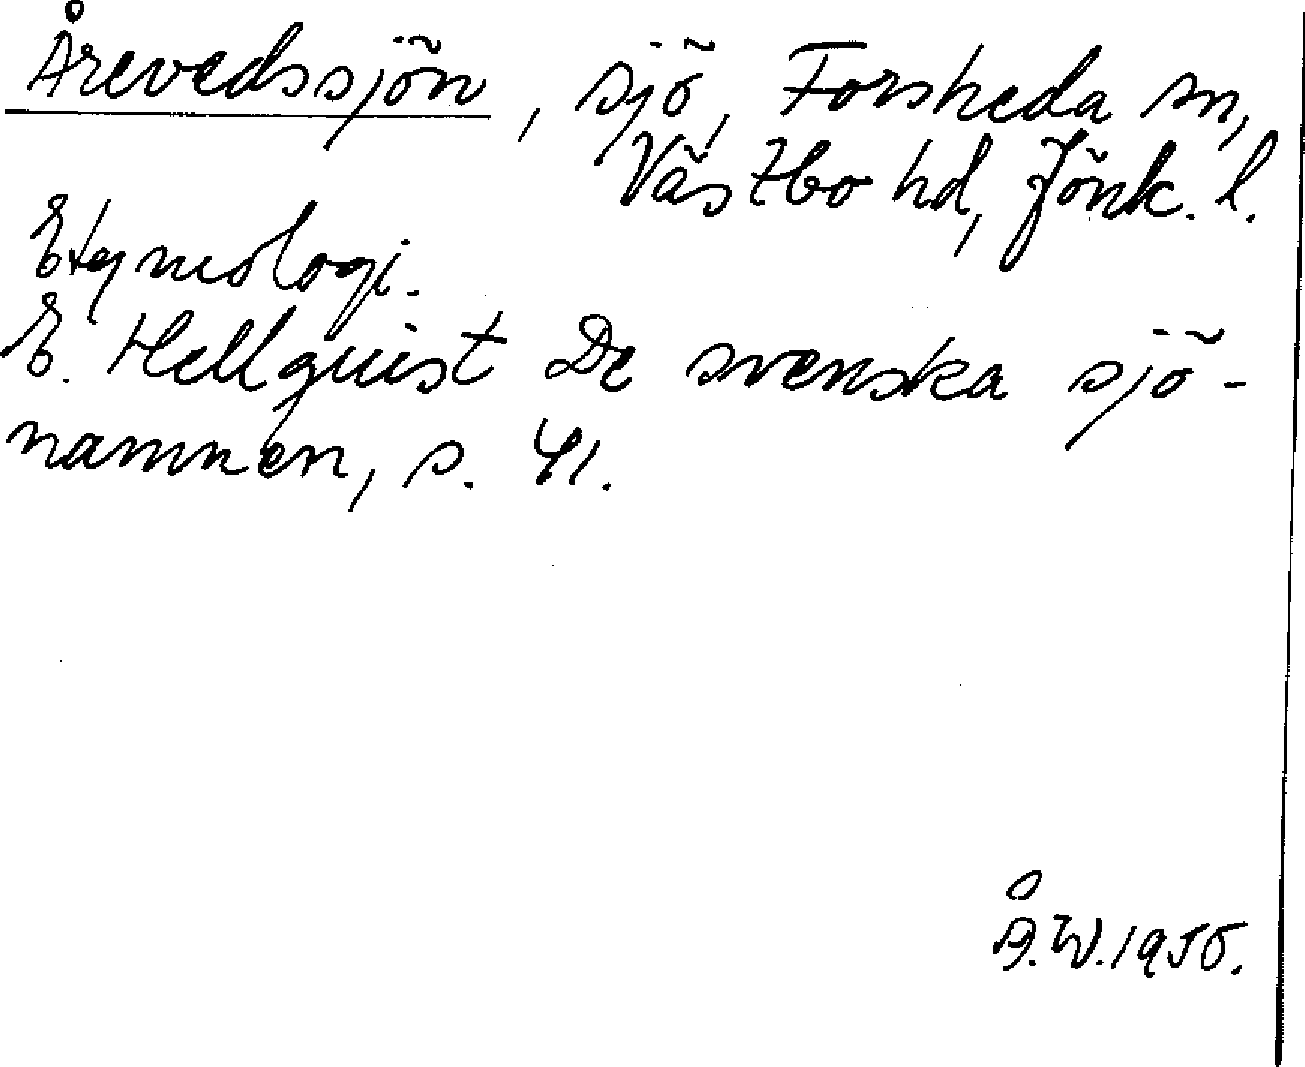 Årevedssjön, sjö, Forsheda sn,
Västbo hd, Jönk. l.
Etymologi.
E. Hellquist De svenska sjö-
namnen, s. 41.
Å.W.1950.